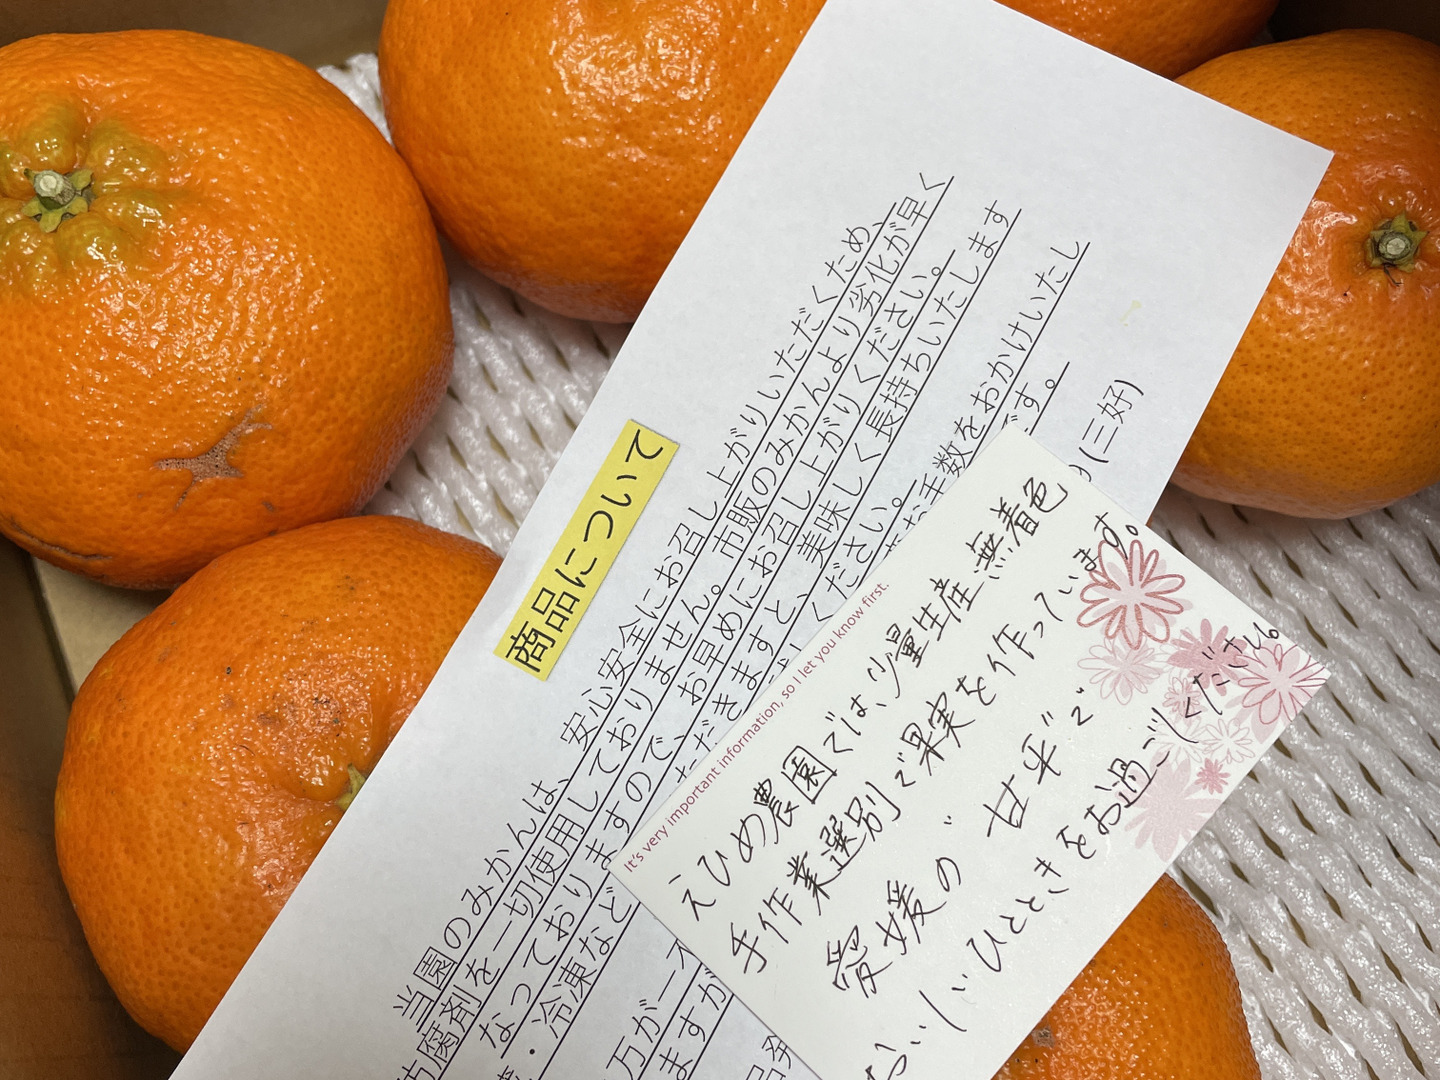 商品について
当園のみかんは、安心安全にお召し上がりいただくため、
防腐剤を一切使用しておりません。市販のみかんより劣化が早く
なっておりますので、お早めにお召し上がりください。
・冷凍など
ただきますと、美味しく長持ちいたします
ください。
万が一
お手数をおかけいたし
ますが
す。
(三好)
It's very important information, so I let you know first.
えひめ農園では、少量生産、無着色
手作業選別で果実を作っています。
愛媛の〝甘平〟で
おいしいひとときをお過ごしくださいね。